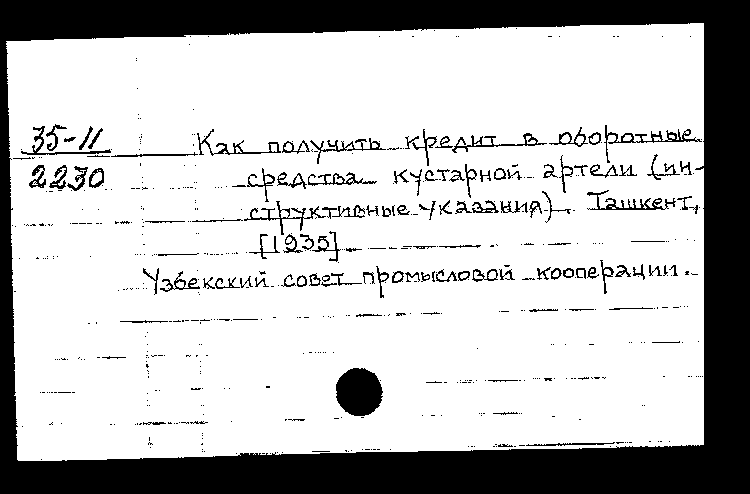 35-11
2230
Как получить кредит в оборотные
средства кустарной артели (ин-
структивные указания). Ташкент,
[1935]
Узбекский совет промысловой кооперации.